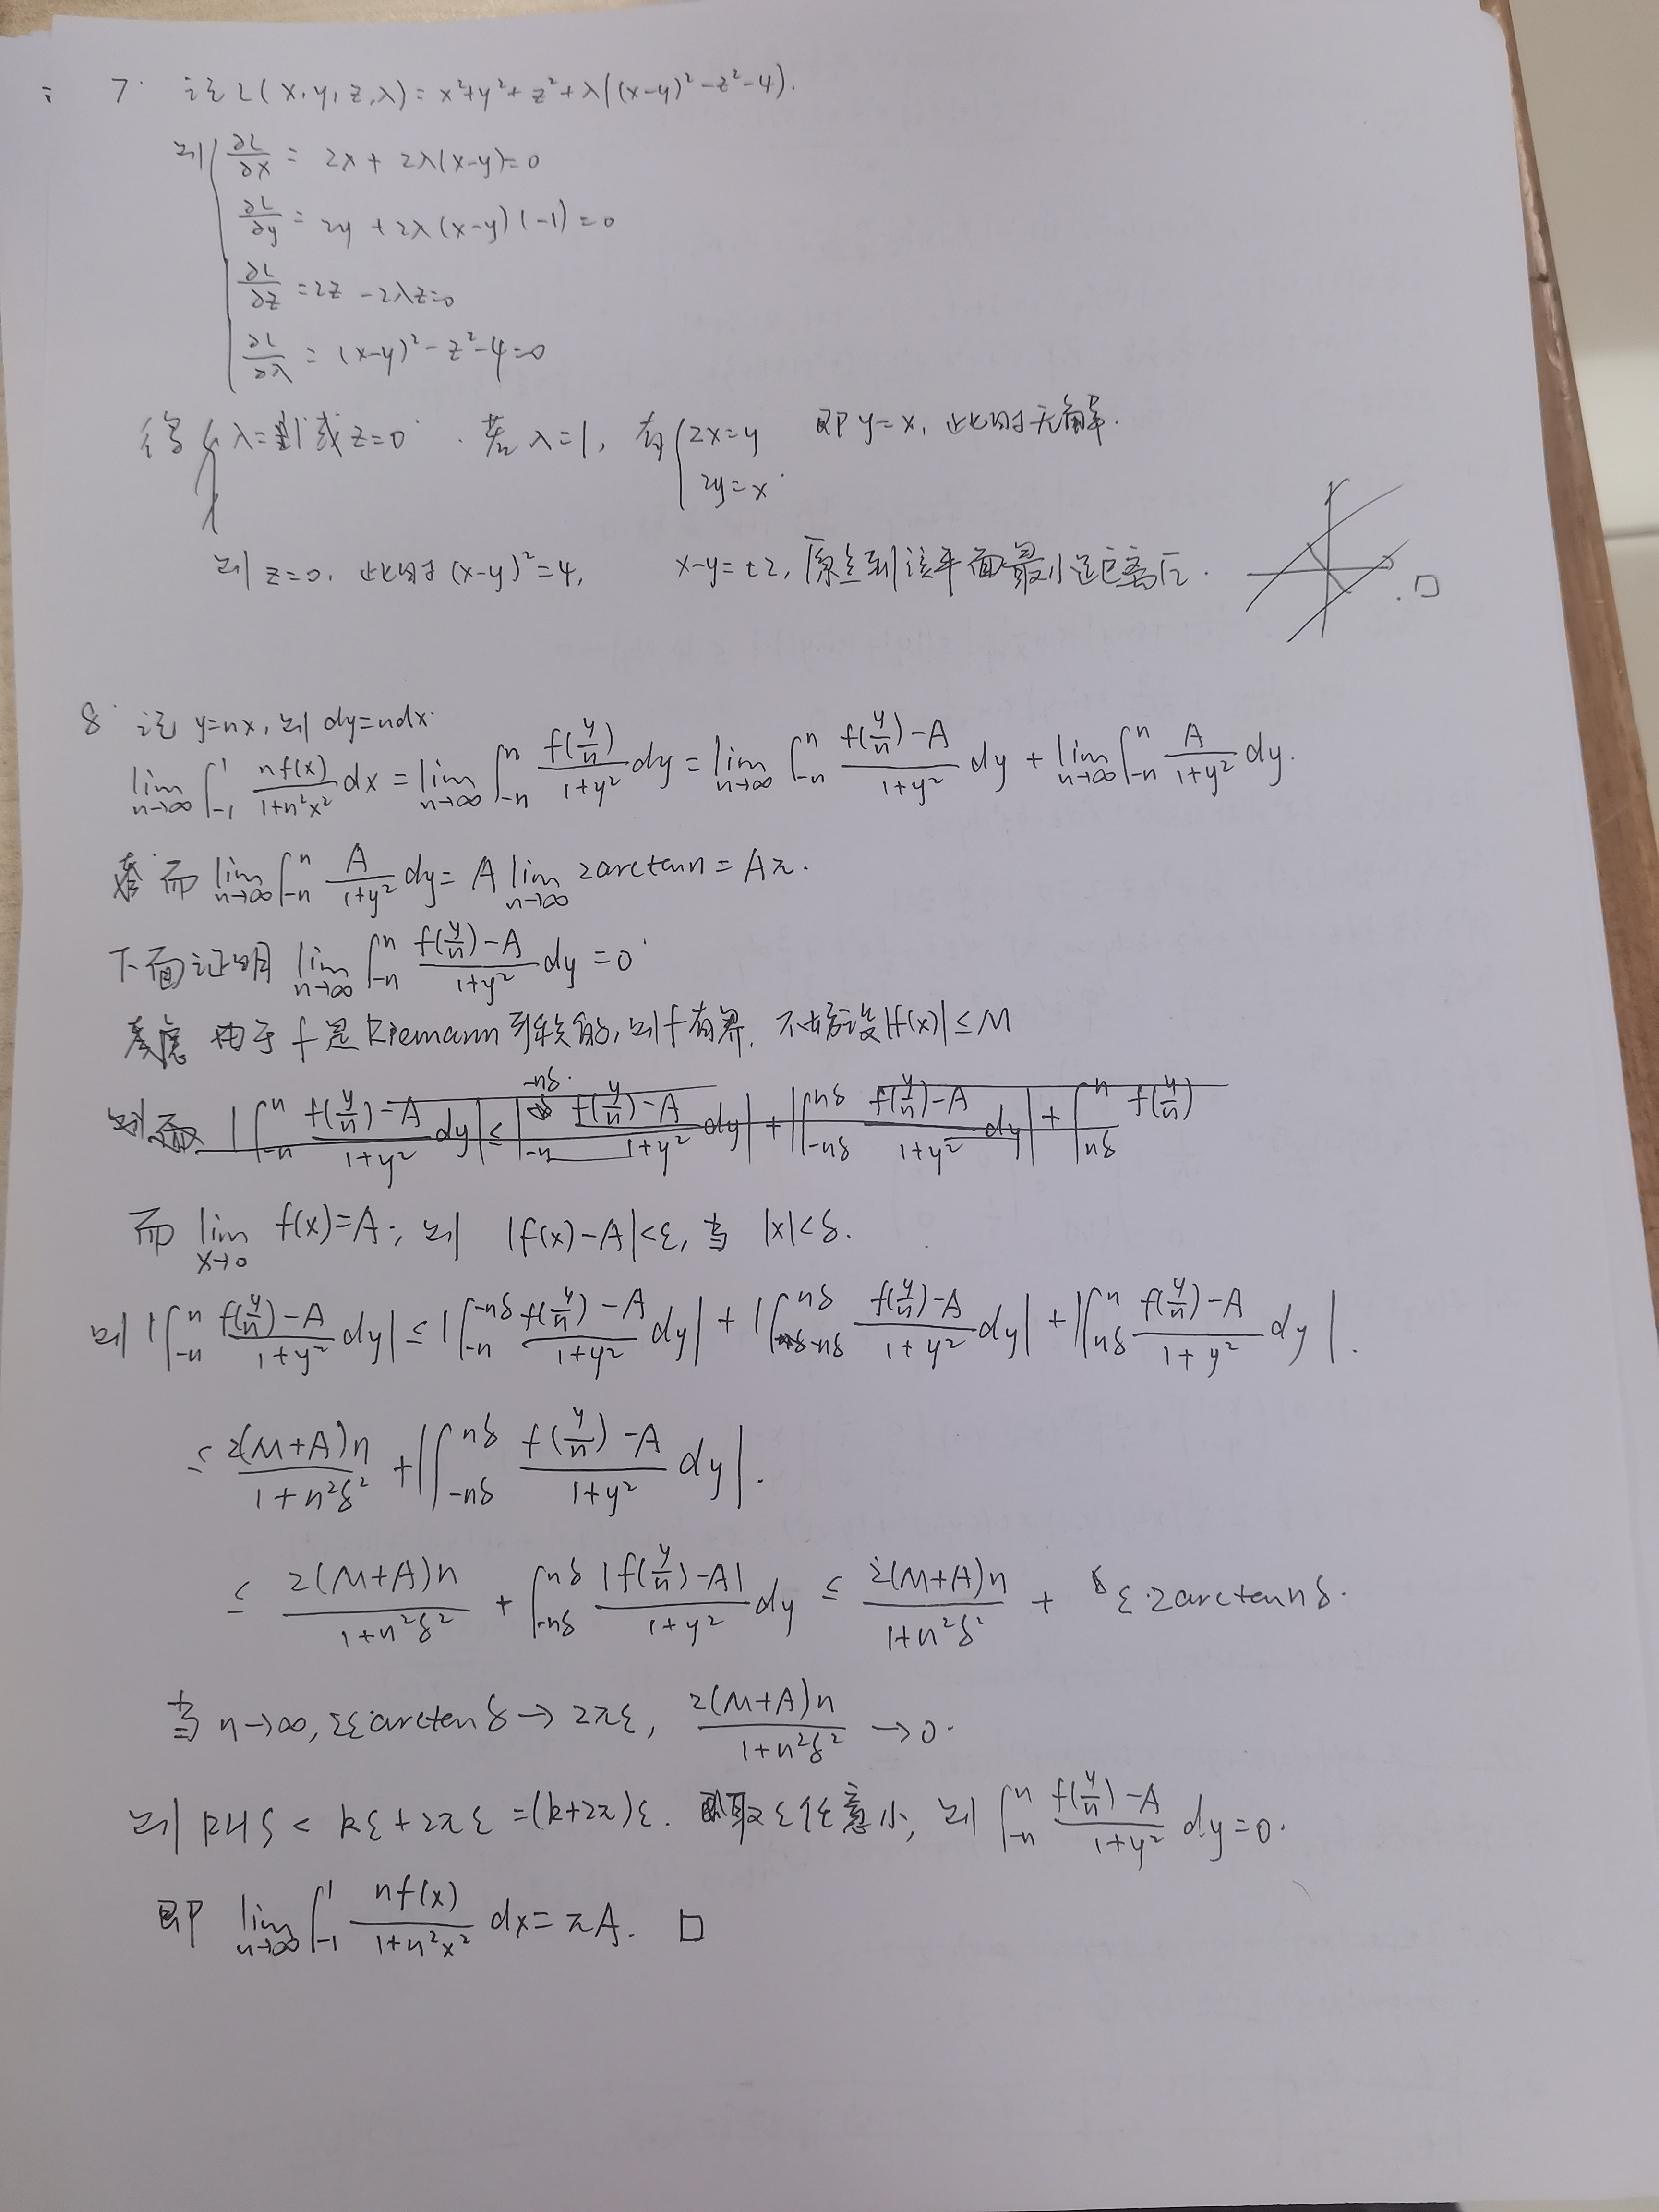 7. 记L(x,y,z,λ)=x²+y²+z²+λ((x-y)²-z²-4).
则 ∂L/∂x = 2x+2λ(x-y)=0
∂L/∂y = 2y+2λ(x-y)(-1)=0
∂L/∂z =2z-2λz=0
∂L/∂λ = (x-y)²-z²-4=0
得 λ=1或z=0. 若λ=1, 有{2x=y 即y=x, 此时无解.
2y=x.
则z=0, 此时(x-y)²=4, x-y=±2, 原点到该平面最小距离√2. □
8. 记y=nx, 则dy=ndx.
lim_{n→∞} ∫_{-1}^{1} nf(x)/(1+n²x²) dx = lim_{n→∞} ∫_{-n}^{n} f(y/n)/(1+y²) dy = lim_{n→∞} ∫_{-n}^{n} (f(y/n)-A)/(1+y²) dy + lim_{n→∞} ∫_{-n}^{n} A/(1+y²) dy.
而 lim_{n→∞} ∫_{-n}^{n} A/(1+y²) dy = A lim_{n→∞} 2arctann = Aπ.
下面证明 lim_{n→∞} ∫_{-n}^{n} (f(y/n)-A)/(1+y²) dy = 0
由于f是Riemann可积的, 则f有界, 不妨设|f(x)|≤M
|∫_{-n}^{n} (f(y/n)-A)/(1+y²) dy| ≤ |∫_{-n}^{-nδ} (f(y/n)-A)/(1+y²) dy| + |∫_{-nδ}^{nδ} (f(y/n)-A)/(1+y²) dy| + |∫_{nδ}^{n} f(y/n)
而 lim_{x→0} f(x)=A, 则 |f(x)-A|<ε, 当 |x|<δ.
则 |∫_{-n}^{n} (f(y/n)-A)/(1+y²) dy| ≤ |∫_{-n}^{-nδ} (f(y/n)-A)/(1+y²) dy| + |∫_{-nδ}^{nδ} (f(y/n)-A)/(1+y²) dy| + |∫_{nδ}^{n} (f(y/n)-A)/(1+y²) dy|.
≤ 2(M+A)n/(1+n²δ²) + |∫_{-nδ}^{nδ} (f(y/n)-A)/(1+y²) dy|.
≤ 2(M+A)n/(1+n²δ²) + ∫_{-nδ}^{nδ} |f(y/n)-A|/(1+y²) dy ≤ 2(M+A)n/(1+n²δ²) + ε·2arctannδ.
当n→∞, 2εarctanδ→2πε, 2(M+A)n/(1+n²δ²) →0.
则RHS < kε+2πε=(k+2π)ε. 取ε任意小, 则 ∫_{-n}^{n} (f(y/n)-A)/(1+y²) dy=0.
即 lim_{n→∞} ∫_{-1}^{1} nf(x)/(1+n²x²) dx=πA. □